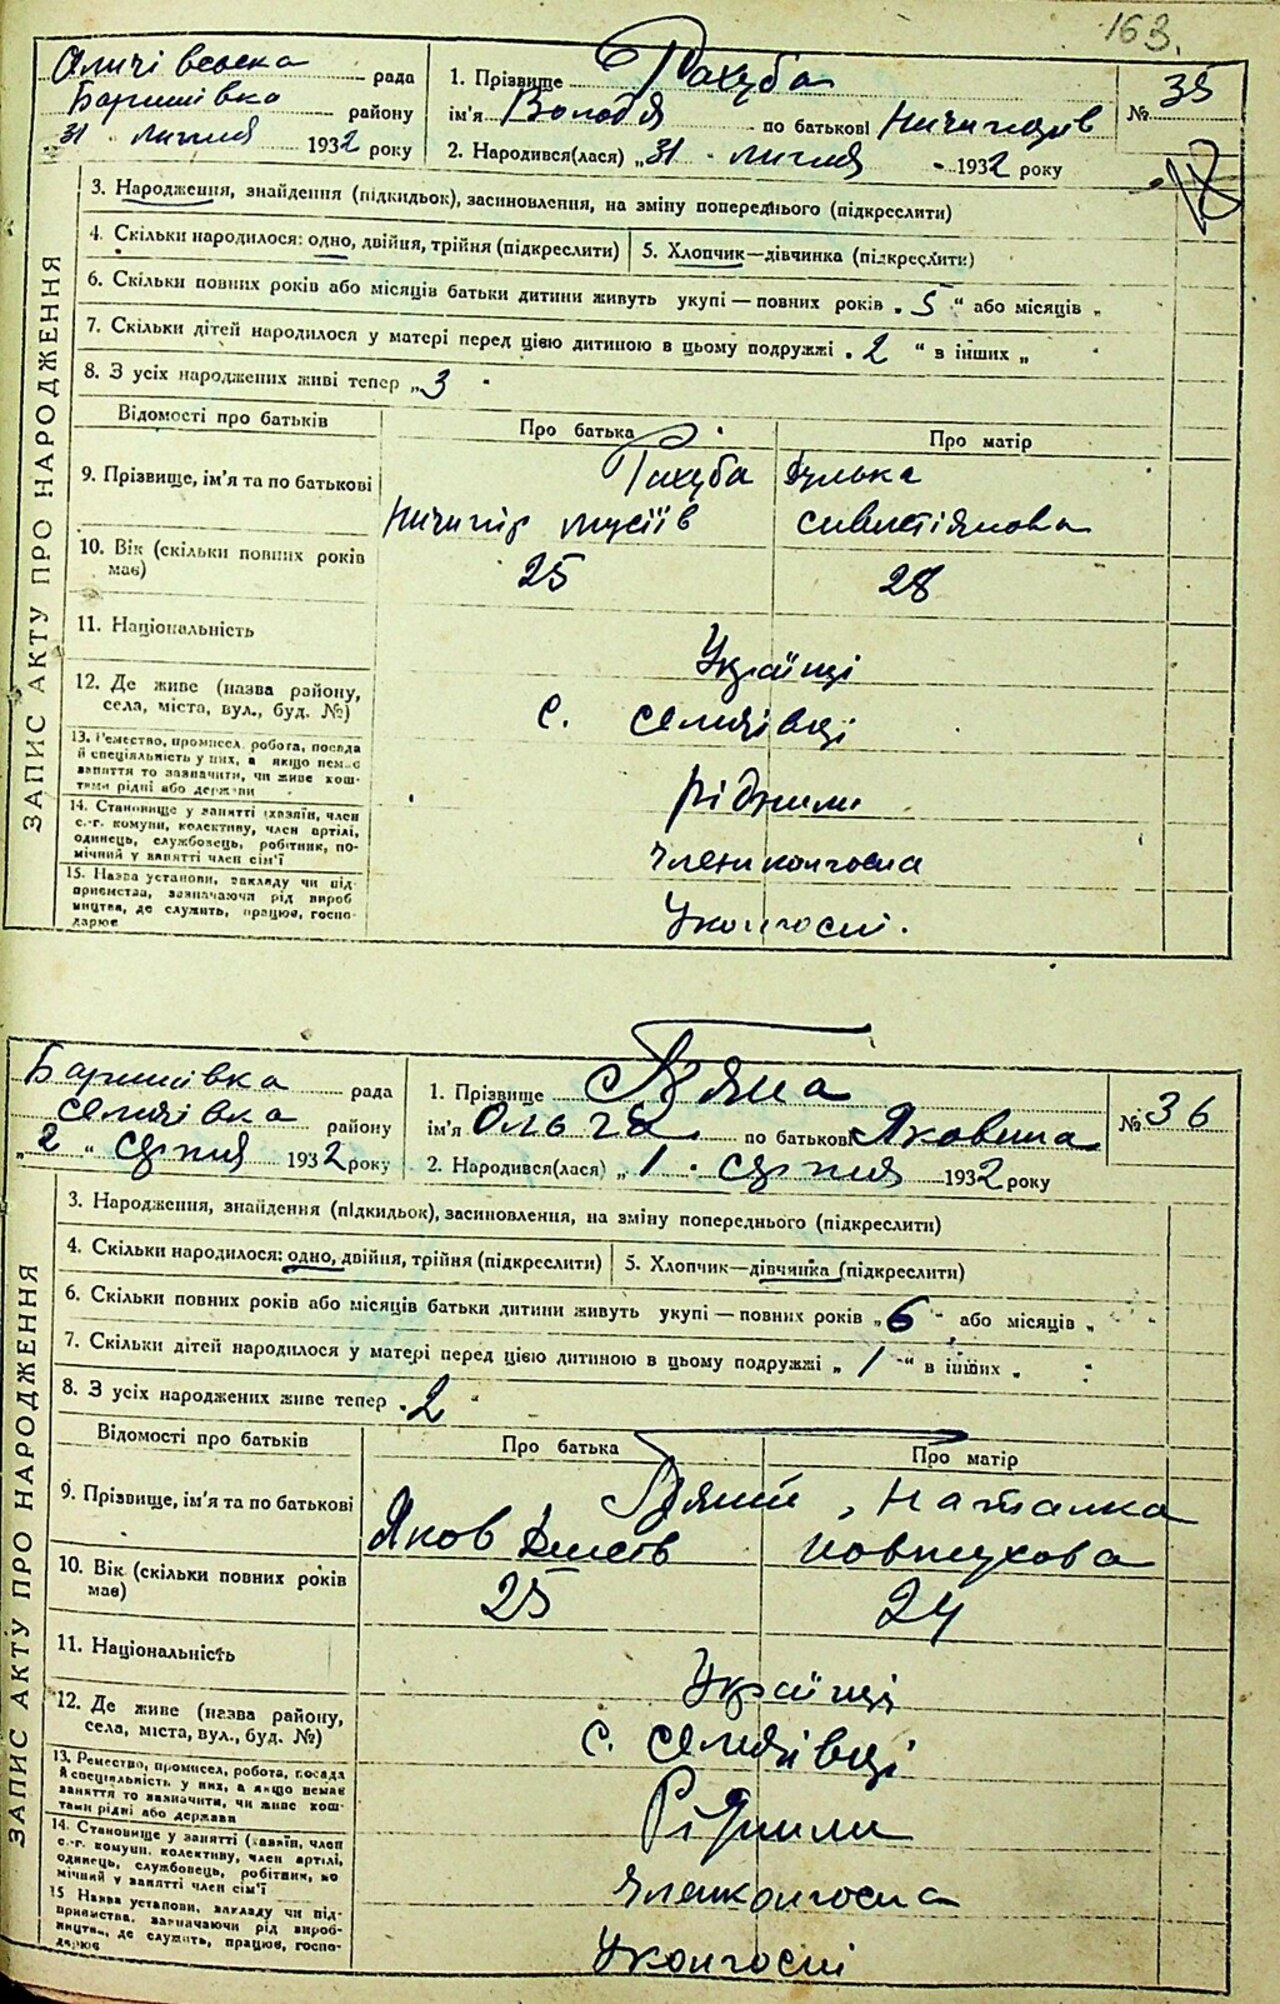 163.
рада
Баришівка району
31 липня 1932 року
1. Прізвище Рахуба
ім'я Володя по батькові Ничипорів
№ 35
2. Народився(лася) „31 липня 1932 року
18
ЗАПИС АКТУ ПРО НАРОДЖЕННЯ
3. Народження, знайдення (підкидьок), засиновлення, на зміну попереднього (підкреслити)
4. Скільки народилося: одно, двійня, трійня (підкреслити) 5. Хлопчик—дівчинка (підкреслити)
6. Скільки повних років або місяців батьки дитини живуть укупі — повних років „5“ або місяців „
7. Скільки дітей народилося у матері перед цією дитиною в цьому подружжі „2“ в інших „
8. З усіх народжених живі тепер „3
Відомості про батьків Про батька Про матір
9. Прізвище, ім'я та по батькові Рахуба Гулька
Ничипір мусіїв
10. Вік (скільки повних років має) 25 28
11. Національність Українці
12. Де живе (назва району, села, міста, вул., буд. №) с. селичівці
13. Ремество, промисел, робота, посада
й спеціяльність у них, а якщо немає
заняття то зазначити, чи живе кош-
тами рідні або держави рідними
14. Становище у занятті (хазяїн, член
с.-г. комуни, колективу, член артілі,
одинець, службовець, робітник, по-
мічний у занятті член сім'ї члени колгоспа
15. Назва установи, закладу чи під-
приємства, зазначаючи рід вироб
ництва, де служить, працює, госпо-
дарює У колгоспі.
Баришівка рада
селичівка району
„2“ серпня 1932 року
1. Прізвище
ім'я Ольга по батькові Яковина
№ 36
2. Народився(лася) „1 серпня 1932 року
ЗАПИС АКТУ ПРО НАРОДЖЕННЯ
3. Народження, знайдення (підкидьок), засиновлення, на зміну попереднього (підкреслити)
4. Скільки народилося: одно, двійня, трійня (підкреслити) 5. Хлопчик—дівчинка (підкреслити)
6. Скільки повних років або місяців батьки дитини живуть укупі — повних років „6“ або місяців „
7. Скільки дітей народилося у матері перед цією дитиною в цьому подружжі „1“ в інших „
8. З усіх народжених живе тепер „2“
Відомості про батьків Про батька Про матір
9. Прізвище, ім'я та по батькові Наталка
Яков
10. Вік (скільки повних років має) 25 24
11. Національність Українці
12. Де живе (назва району, села, міста, вул., буд. №) с. селичівці
13. Ремество, промисел, робота, посада
й спеціяльність у них, а якщо немає
заняття то зазначити, чи живе кош-
тами рідні або держави Рідними
14. Становище у занятті (хазяїн, член
с.-г. комуни, колективу, член артілі,
одинець, службовець, робітник, по
мічний у занятті член сім'ї член колгоспа
15 Назва установи, закладу чи під-
приємства, зазначаючи рід вироб-
ництва, де служить, працює, госпо-
дарює У колгоспі